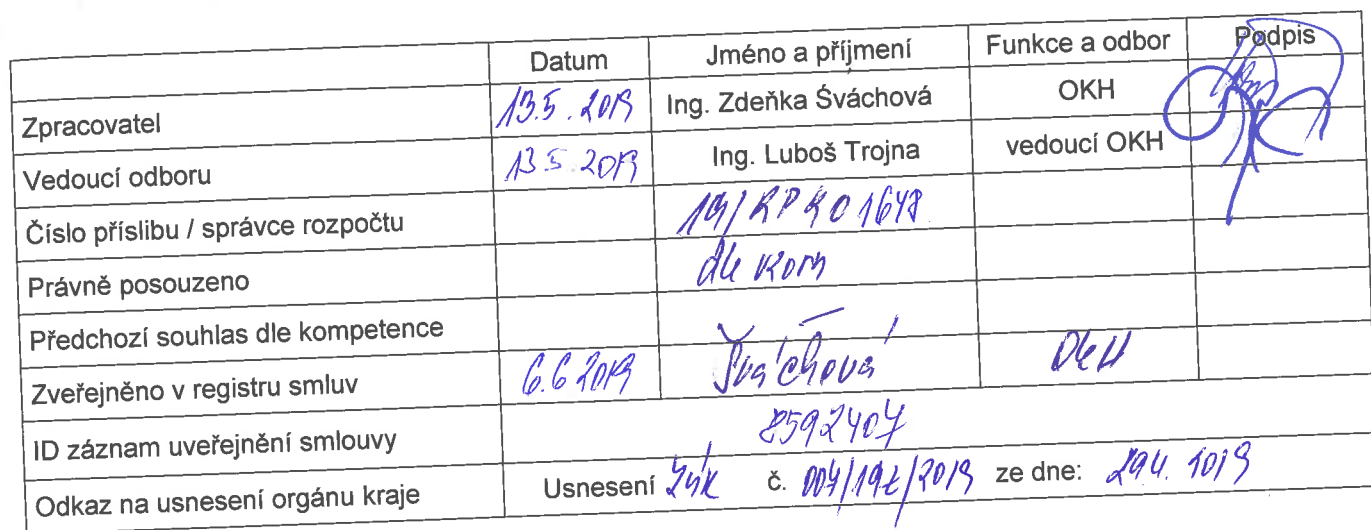 Datum Jméno a příjmení Funkce a odbor Podpis
Zpracovatel 13.5.2019 Ing. Zdeňka Šváchová OKH
Vedoucí odboru 13.5.2019 Ing. Luboš Trojna vedoucí OKH
Číslo příslibu / správce rozpočtu 19/RPRO1648
Právně posouzeno
Předchozí souhlas dle kompetence
Zveřejněno v registru smluv 6.6.2019 Šváchová OKH
ID záznam uveřejnění smlouvy 8592407
Odkaz na usnesení orgánu kraje Usnesení č. ze dne: